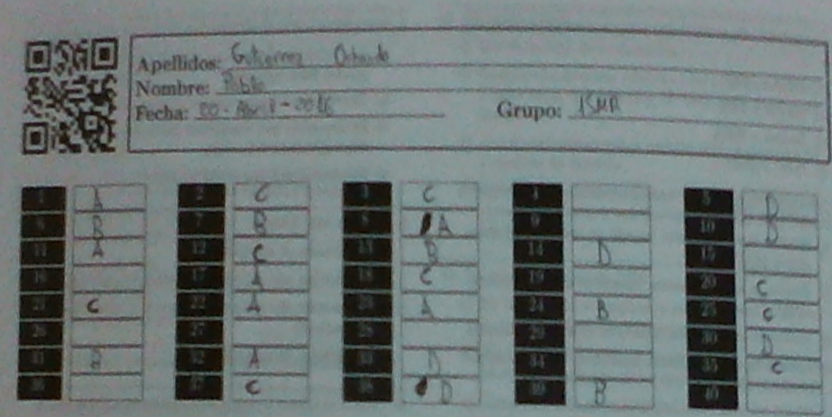 Apellidos: Gutierrez
Nombre: Pablo
Fecha: Grupo: 1SMR
1 A 2 C 3 C 4 5 D
6 B 7 B 8 A 9 10 D
11 A 12 C 13 B 14 D 15
16 17 A 18 C 19 20 C
21 C 22 A 23 A 24 B 25 C
26 27 28 29 30 D
31 32 A 33 D 34 35 C
36 37 C 38 D 39 B 40